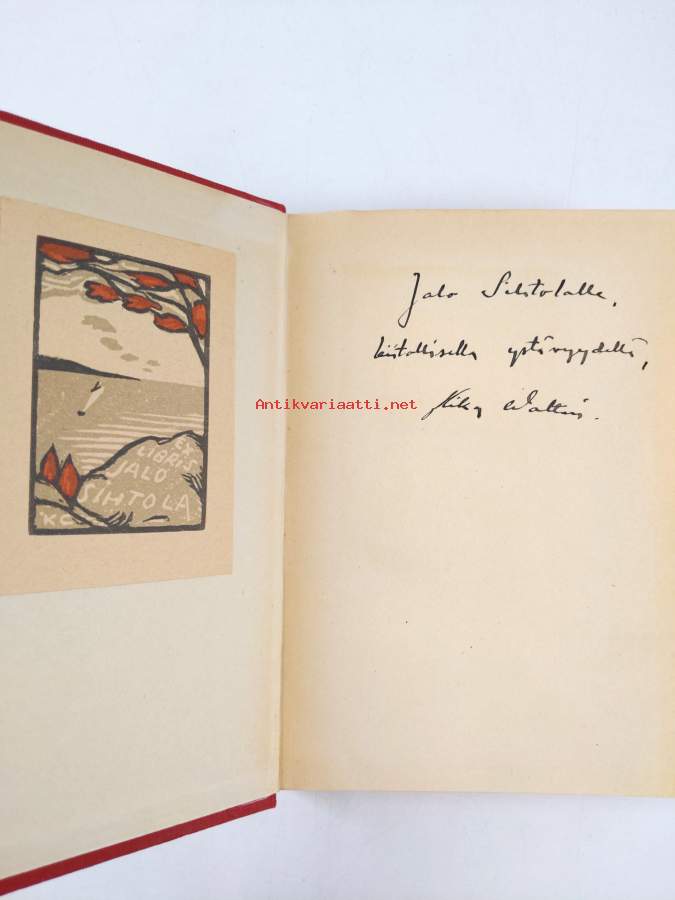 EX
LIBRIS
JALO
SIHTOLA
KC
Jalo Sihtolalle,
kiitollisella ystävyydellä,
Mika Waltari.
Antikvariaatti.net